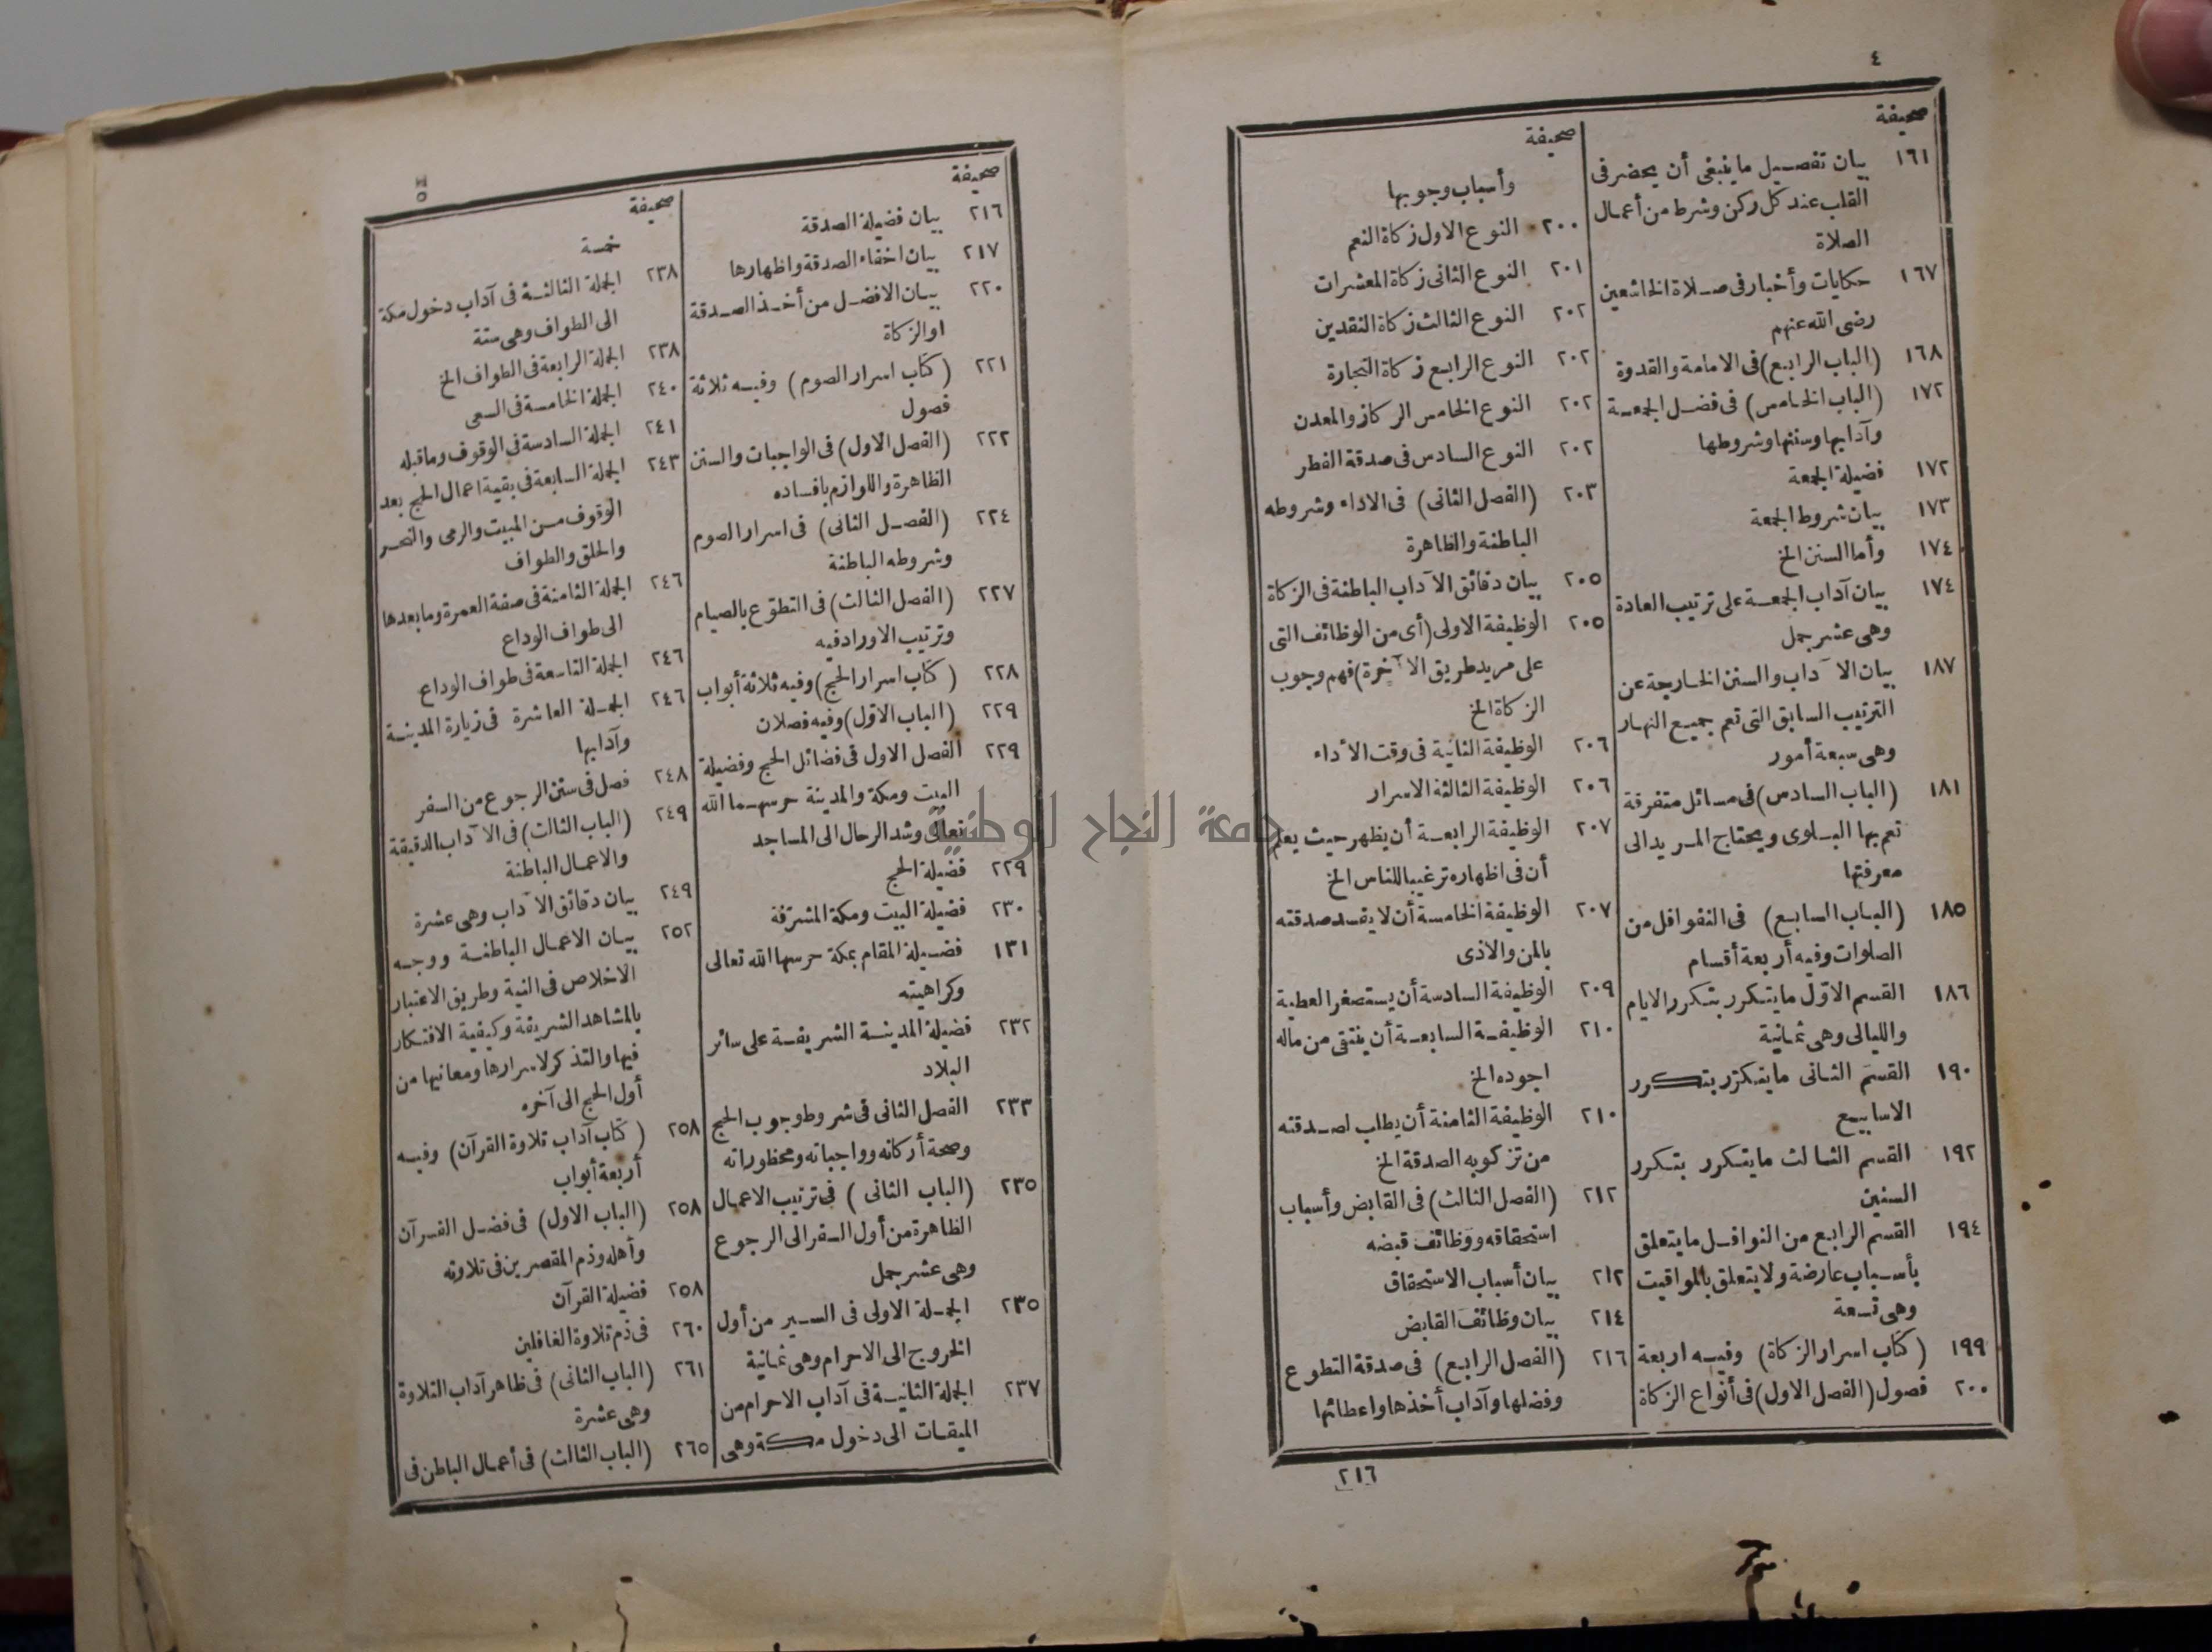 ٤
صحيفة
١٦١ بيان تفصيل ما ينبغى أن يحضر فى
القلب عند كل ركن وشرط من أعمال
الصلاة
١٦٧ حكايات وأخبار فى صلاة الخاشعين
رضى الله عنهم
١٦٨ (الباب الرابع) فى الامامة والقدوة
١٧٢ (الباب الخامس) فى فضل الجمعة
وآدابها وسننها وشروطها
١٧٢ فضيلة الجمعة
١٧٣ بيان شروط الجمعة
١٧٤ وأما السنن الخ
١٧٤ بيان آداب الجمعة على ترتيب العادة
وهى عشر جمل
١٨٧ بيان الآداب والسنن الخارجة عن
الترتيب السابق التى تعم جميع النهار
وهى سبعة أمور
١٨١ (الباب السادس) فى مسائل متفرقة
تعم بها البلوى ويحتاج المريد الى
معرفتها
١٨٥ (الباب السابع) فى النفوافل من
الصلوات وفيه أربعة أقسام
١٨٦ القسم الاوّل ما يتكرر بتكرر الايام
والليالى وهى ثمانية
١٩٠ القسم الثانى ما يتكرّر بتكرر
الاسابيع
١٩٢ القسم الثالث ما يتكرر بتكرر
السنين
١٩٤ القسم الرابع من النوافل ما يتعلق
بأسباب عارضة ولا يتعلق بالمواقيت
وهى تسعة
١٩٩ (كتاب اسرار الزكاة) وفيه اربعة
٢٠٠ فصول (الفصل الاول) فى أنواع الزكاة
صحيفة
وأسباب وجوبها
٢٠٠ النوع الاول زكاة النعم
٢٠١ النوع الثانى زكاة المعشرات
٢٠٢ النوع الثالث زكاة النقدين
٢٠٢ النوع الرابع زكاة التجارة
٢٠٢ النوع الخامس الركاز والمعدن
٢٠٢ النوع السادس فى صدقة الفطر
٢٠٣ (الفصل الثانى) فى الاداء وشروطه
الباطنة والظاهرة
٢٠٥ بيان دقائق الآداب الباطنة فى الزكاة
٢٠٥ الوظيفة الاولى (أى من الوظائف التى
على مريد طريق الآخرة) فهم وجوب
الزكاة الخ
٢٠٦ الوظيفة الثانية فى وقت الأداء
٢٠٦ الوظيفة الثالثة الاسرار
٢٠٧ الوظيفة الرابعة أن يظهر حيث يعلم
أن فى اظهاره ترغيبا للناس الخ
٢٠٧ الوظيفة الخامسة أن لا يفسد صدقته
بالمن والاذى
٢٠٩ الوظيفة السادسة أن يستصغر العطية
٢١٠ الوظيفة السابعة أن ينتقى من ماله
اجوده الخ
٢١٠ الوظيفة الثامنة أن يطلب لصدقته
من تزكو به الصدقة الخ
٢١٢ (الفصل الثالث) فى القابض وأسباب
استحقاقه ووظائف قبضه
٢١٢ بيان أسباب الاستحقاق
٢١٤ بيان وظائف القابض
٢١٦ (الفصل الرابع) فى صدقة التطوع
وفضلها وآداب أخذها واعطائها
٢١٦
٥
صحيفة
٢١٦ بيان فضيلة الصدقة
٢١٧ بيان اخفاء الصدقة واظهارها
٢٢٠ بيان الافضل من أخذ الصدقة
او الزكاة
٢٢١ (كتاب اسرار الصوم) وفيه ثلاثة
فصول
٢٢٢ (الفصل الاول) فى الواجبات والسنن
الظاهرة واللوازم بافساده
٢٢٤ (الفصل الثانى) فى اسرار الصوم
وشروطه الباطنة
٢٢٧ (الفصل الثالث) فى التطوّع بالصيام
وترتيب الاوراد فيه
٢٢٨ (كتاب اسرار الحج) وفيه ثلاثة أبواب
٢٢٩ (الباب الاوّل) وفيه فصلان
٢٢٩ الفصل الاول فى فضائل الحج وفضيلة
البيت ومكة والمدينة حرسهما الله
تعالى وشد الرحال الى المساجد
٢٢٩ فضيلة الحج
٢٣٠ فضيلة البيت ومكة المشرّفة
١٣١ فضيلة المقام بمكة حرسها الله تعالى
وكراهيته
٢٣٢ فضيلة المدينة الشريفة على سائر
البلاد
٢٣٣ الفصل الثانى فى شروط وجوب الحج
وصحة أركانه وواجباته ومحظوراته
٢٣٥ (الباب الثانى) فى ترتيب الاعمال
الظاهرة من أول السفر الى الرجوع
وهى عشر جمل
٢٣٥ الجملة الاولى فى السير من أول
الخروج الى الاحرام وهى ثمانية
٢٣٧ الجملة الثانية فى آداب الاحرام من
الميقات الى دخول مكة وهى
صحيفة
خمسة
٢٣٨ الجملة الثالثة فى آداب دخول مكة
الى الطواف وهى ستة
٢٣٨ الجملة الرابعة فى الطواف الخ
٢٤٠ الجملة الخامسة فى السعى
٢٤١ الجملة السادسة فى الوقوف وما قبله
٢٤٣ الجملة السابعة فى بقية اعمال الحج بعد
الوقوف من المبيت والرمى والنحر
والحلق والطواف
٢٤٦ الجملة الثامنة فى صفة العمرة وما بعدها
الى طواف الوداع
٢٤٦ الجملة التاسعة فى طواف الوداع
٢٤٦ الجملة العاشرة فى زيارة المدينة
وآدابها
٢٤٨ فصل فى سنن الرجوع من السفر
٢٤٩ (الباب الثالث) فى الآداب الدقيقة
والاعمال الباطنة
٢٤٩ بيان دقائق الآداب وهى عشرة
٢٥٢ بيان الاعمال الباطنة ووجه
الاخلاص فى النية وطريق الاعتبار
بالمشاهد الشريفة وكيفية الافتكار
فيها والتذكر لاسرارها ومعانيها من
أول الحج الى آخره
٢٥٨ (كتاب آداب تلاوة القرآن) وفيه
أربعة أبواب
٢٥٨ (الباب الاول) فى فضل القرآن
وأهله وذم المقصرين فى تلاوته
٢٥٨ فضيلة القرآن
٢٦٠ فى ذم تلاوة الغافلين
٢٦١ (الباب الثانى) فى ظاهر آداب التلاوة
وهى عشرة
٢٦٥ (الباب الثالث) فى أعمال الباطن فى
جامعة النجاح الوطنية